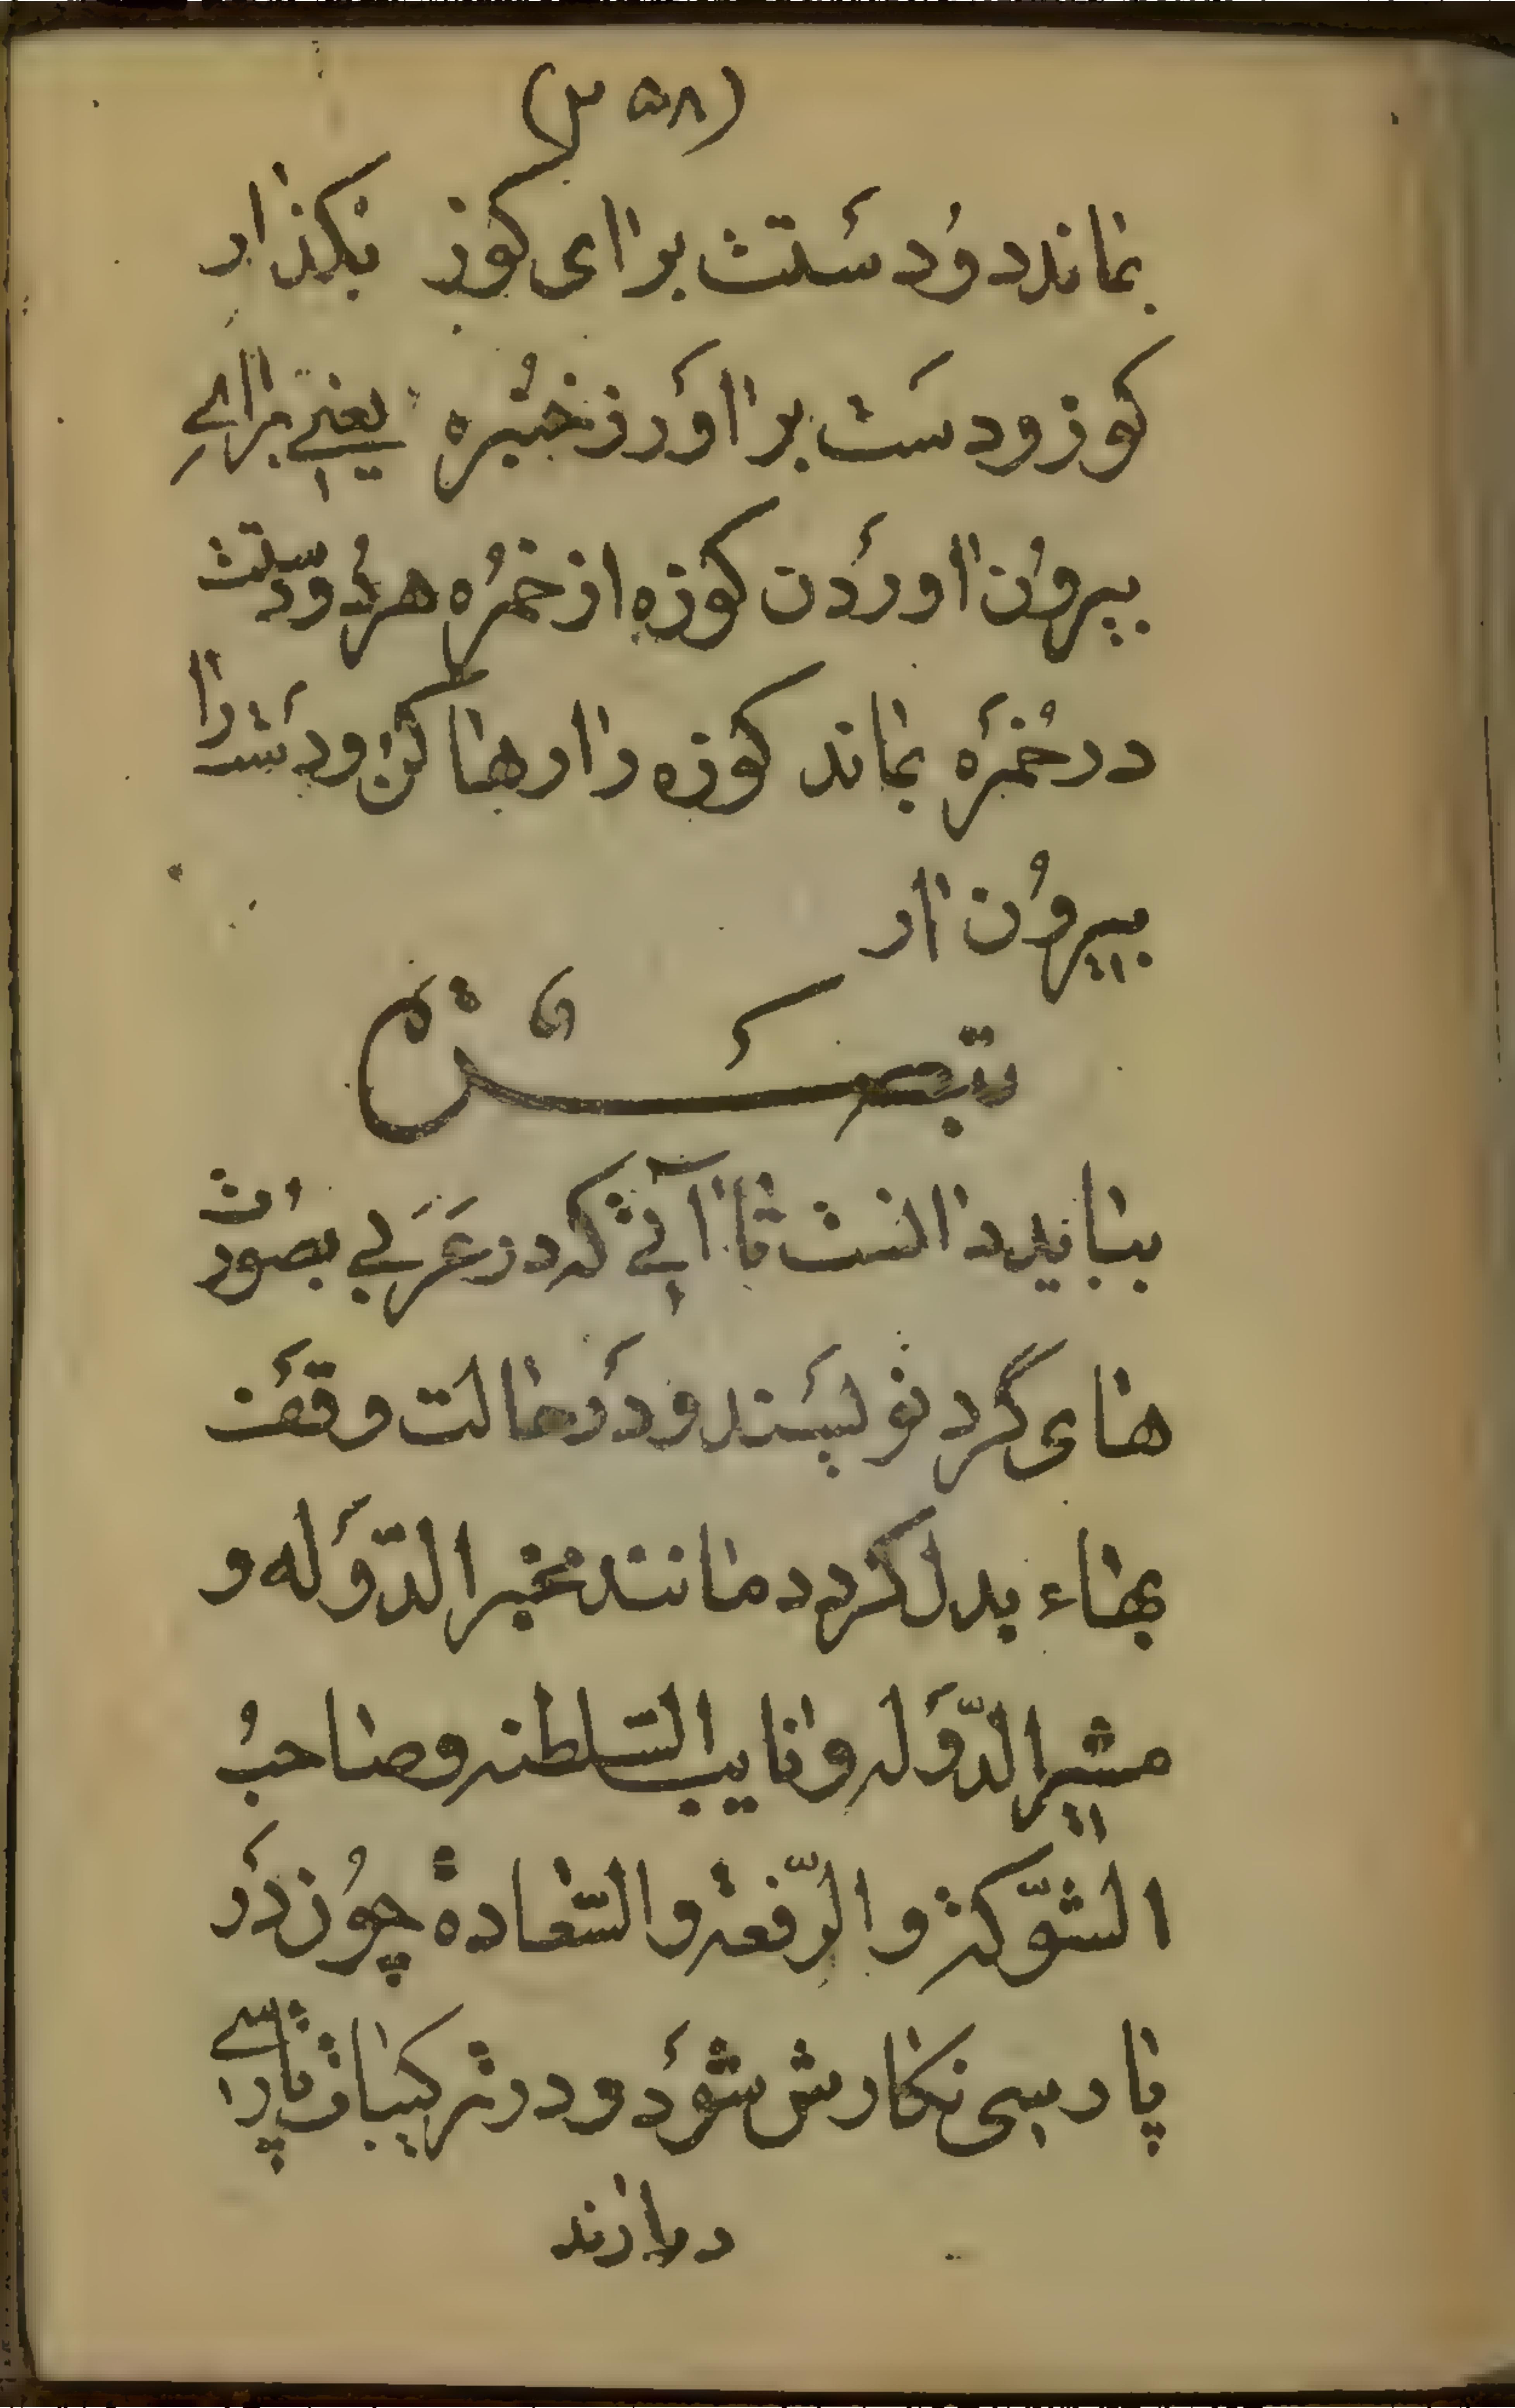 (۵۸ س)
نماند دودستت براای کوز بگذار
کوز ودست برااور ز خمره یعنے براے
بیرون ااوردن کوزه از خمره هر دودستت
در خمره نماند کوزه راارها کن ودست را
بیرون اار
تبصرة
بباید دانست تاآئے که در عربے بصورت
های گرد نویسند ودر حالت وقف
بهاء بدل کردد مانند مخبر الدّوله و
مشیر الدّوله ونایب السّلطنه وصاحب
الشّوکة والرّفعة والسّعادة چون در
پارسی نکارش شود ودر ترکیبات پارسے